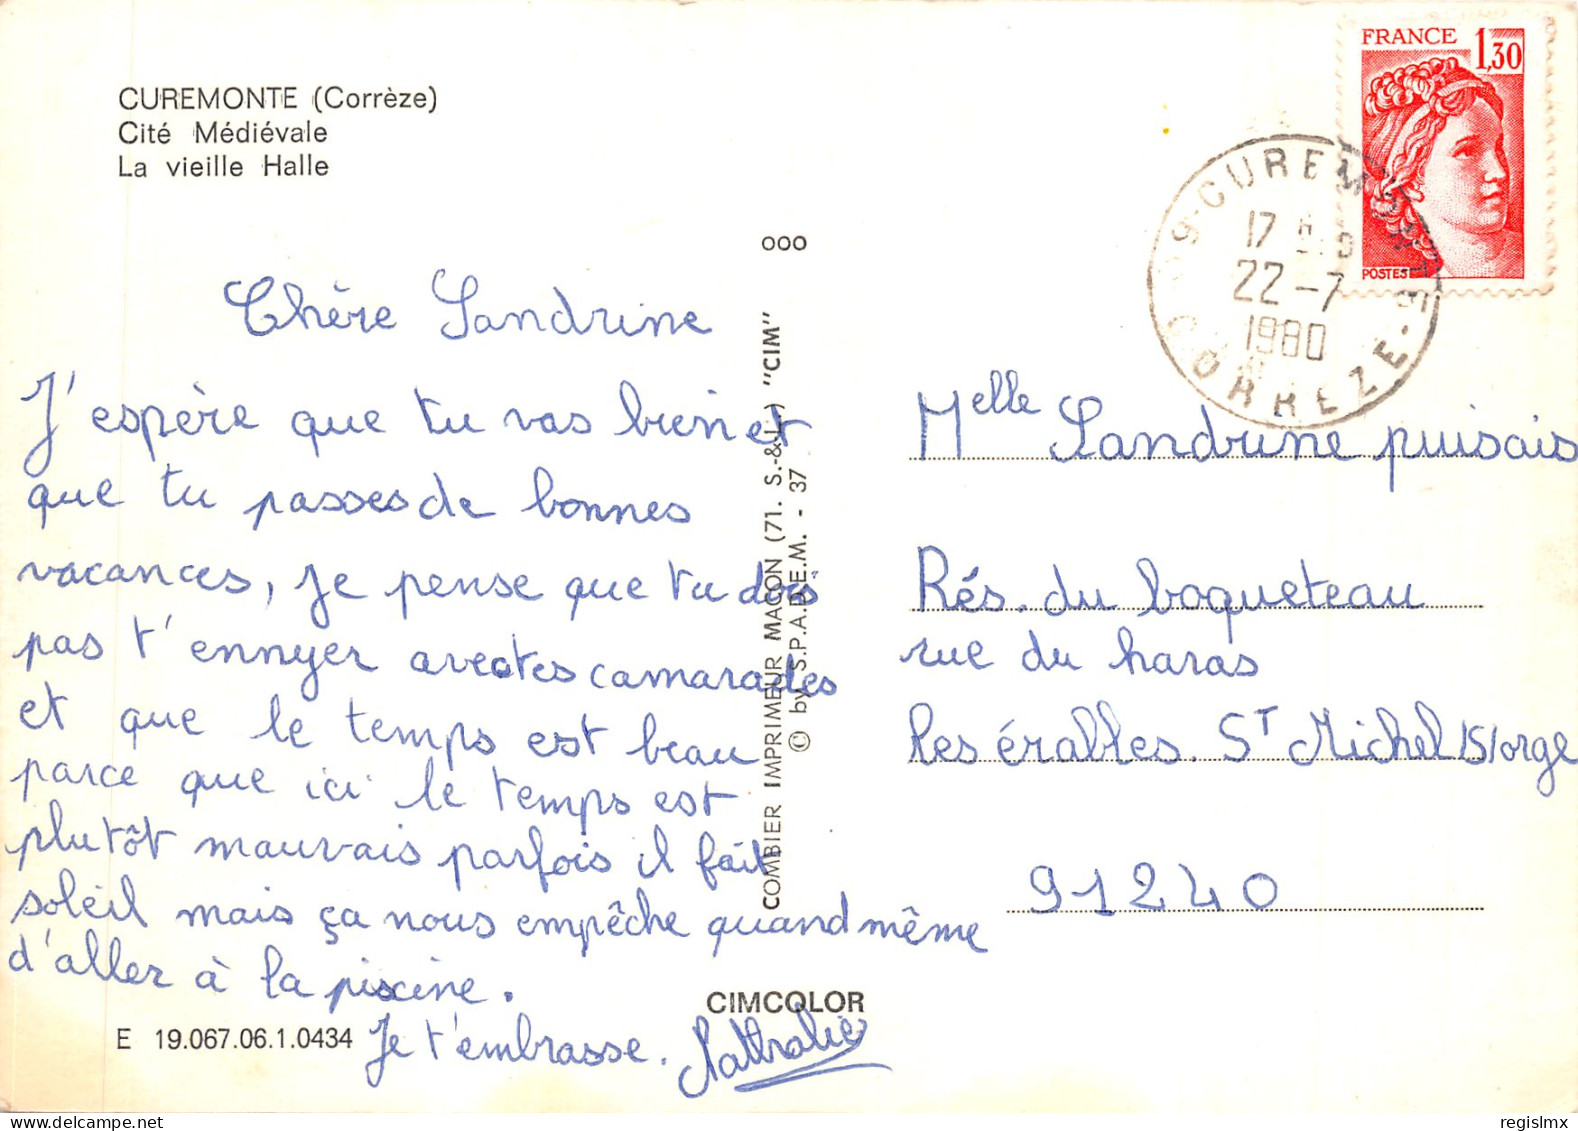 CUREMONTE (Corrèze)
Cité Médiévale
La vieille Halle
FRANCE 1,30
POSTES
19-CUREMONTE-19
17 H
22-7
1980
CORREZE
ooo
Chère Sandrine
J'espère que tu vas bien et
que tu passes de bonnes
vacances, je pense que tu dois
pas t'ennyer avec tes camarades
et que le temps est beau
parce que ici le temps est
plutôt mauvais parfois il fait
soleil mais ça nous empêche quand même
d'aller à la piscine.
Je t'embrasse. Nathalie
COMBIER IMPRIMEUR MACON (71. S.-&-L.) "CIM"
© by S.P.A.D.E.M. - 37
CIMCOLOR
E 19.067.06.1.0434
Melle Sandrine puisais
Rés. du boqueteau
rue du haras
les érables. ST Michel/S/orge
91240
regislmx